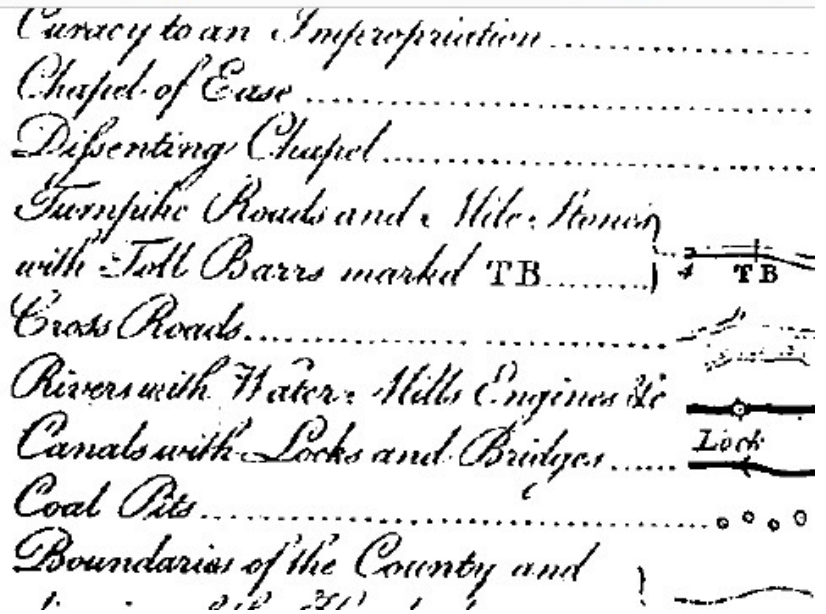 Curacy to an Impropriation
Chapel of Ease
Dissenting Chapel
Turnpike Roads and Mile Stones
with Toll Barrs markd TB
TB
Cross Roads
Rivers with Water Mills Engines &c
Canals with Locks and Bridges
Lock
Coal Pits
Boundaries of the County and
of the